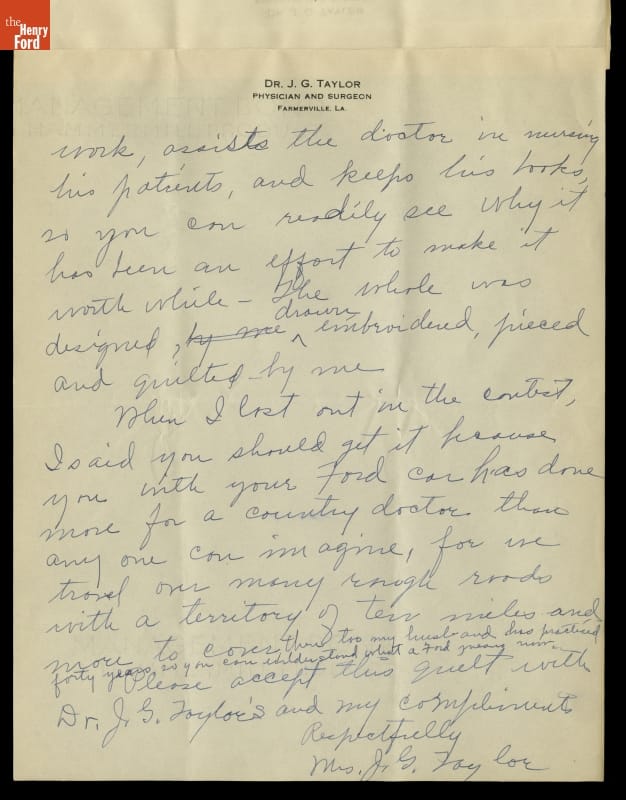 the
Henry
Ford
DR. J. G. TAYLOR
PHYSICIAN AND SURGEON
FARMERVILLE, LA.
work, assists the doctor in nursing
his patients, and keeps his books,
so you can readily see why it
has been an effort to make it
worth while – The whole was
designed, by me drawn embroidered, pieced
and quilted by me
When I lost out in the contest,
I said you should get it because
you with your Ford car has done
more for a country doctor than
any one can imagine, for we
travel over many rough roads
with a territory of ten miles and
more to cover, then too my husband has practiced
forty years, so you can understand what a Ford means now.
Please accept this quilt with
Dr. J. G. Taylor's and my compliments
Respectfully
Mrs. J. G. Taylor